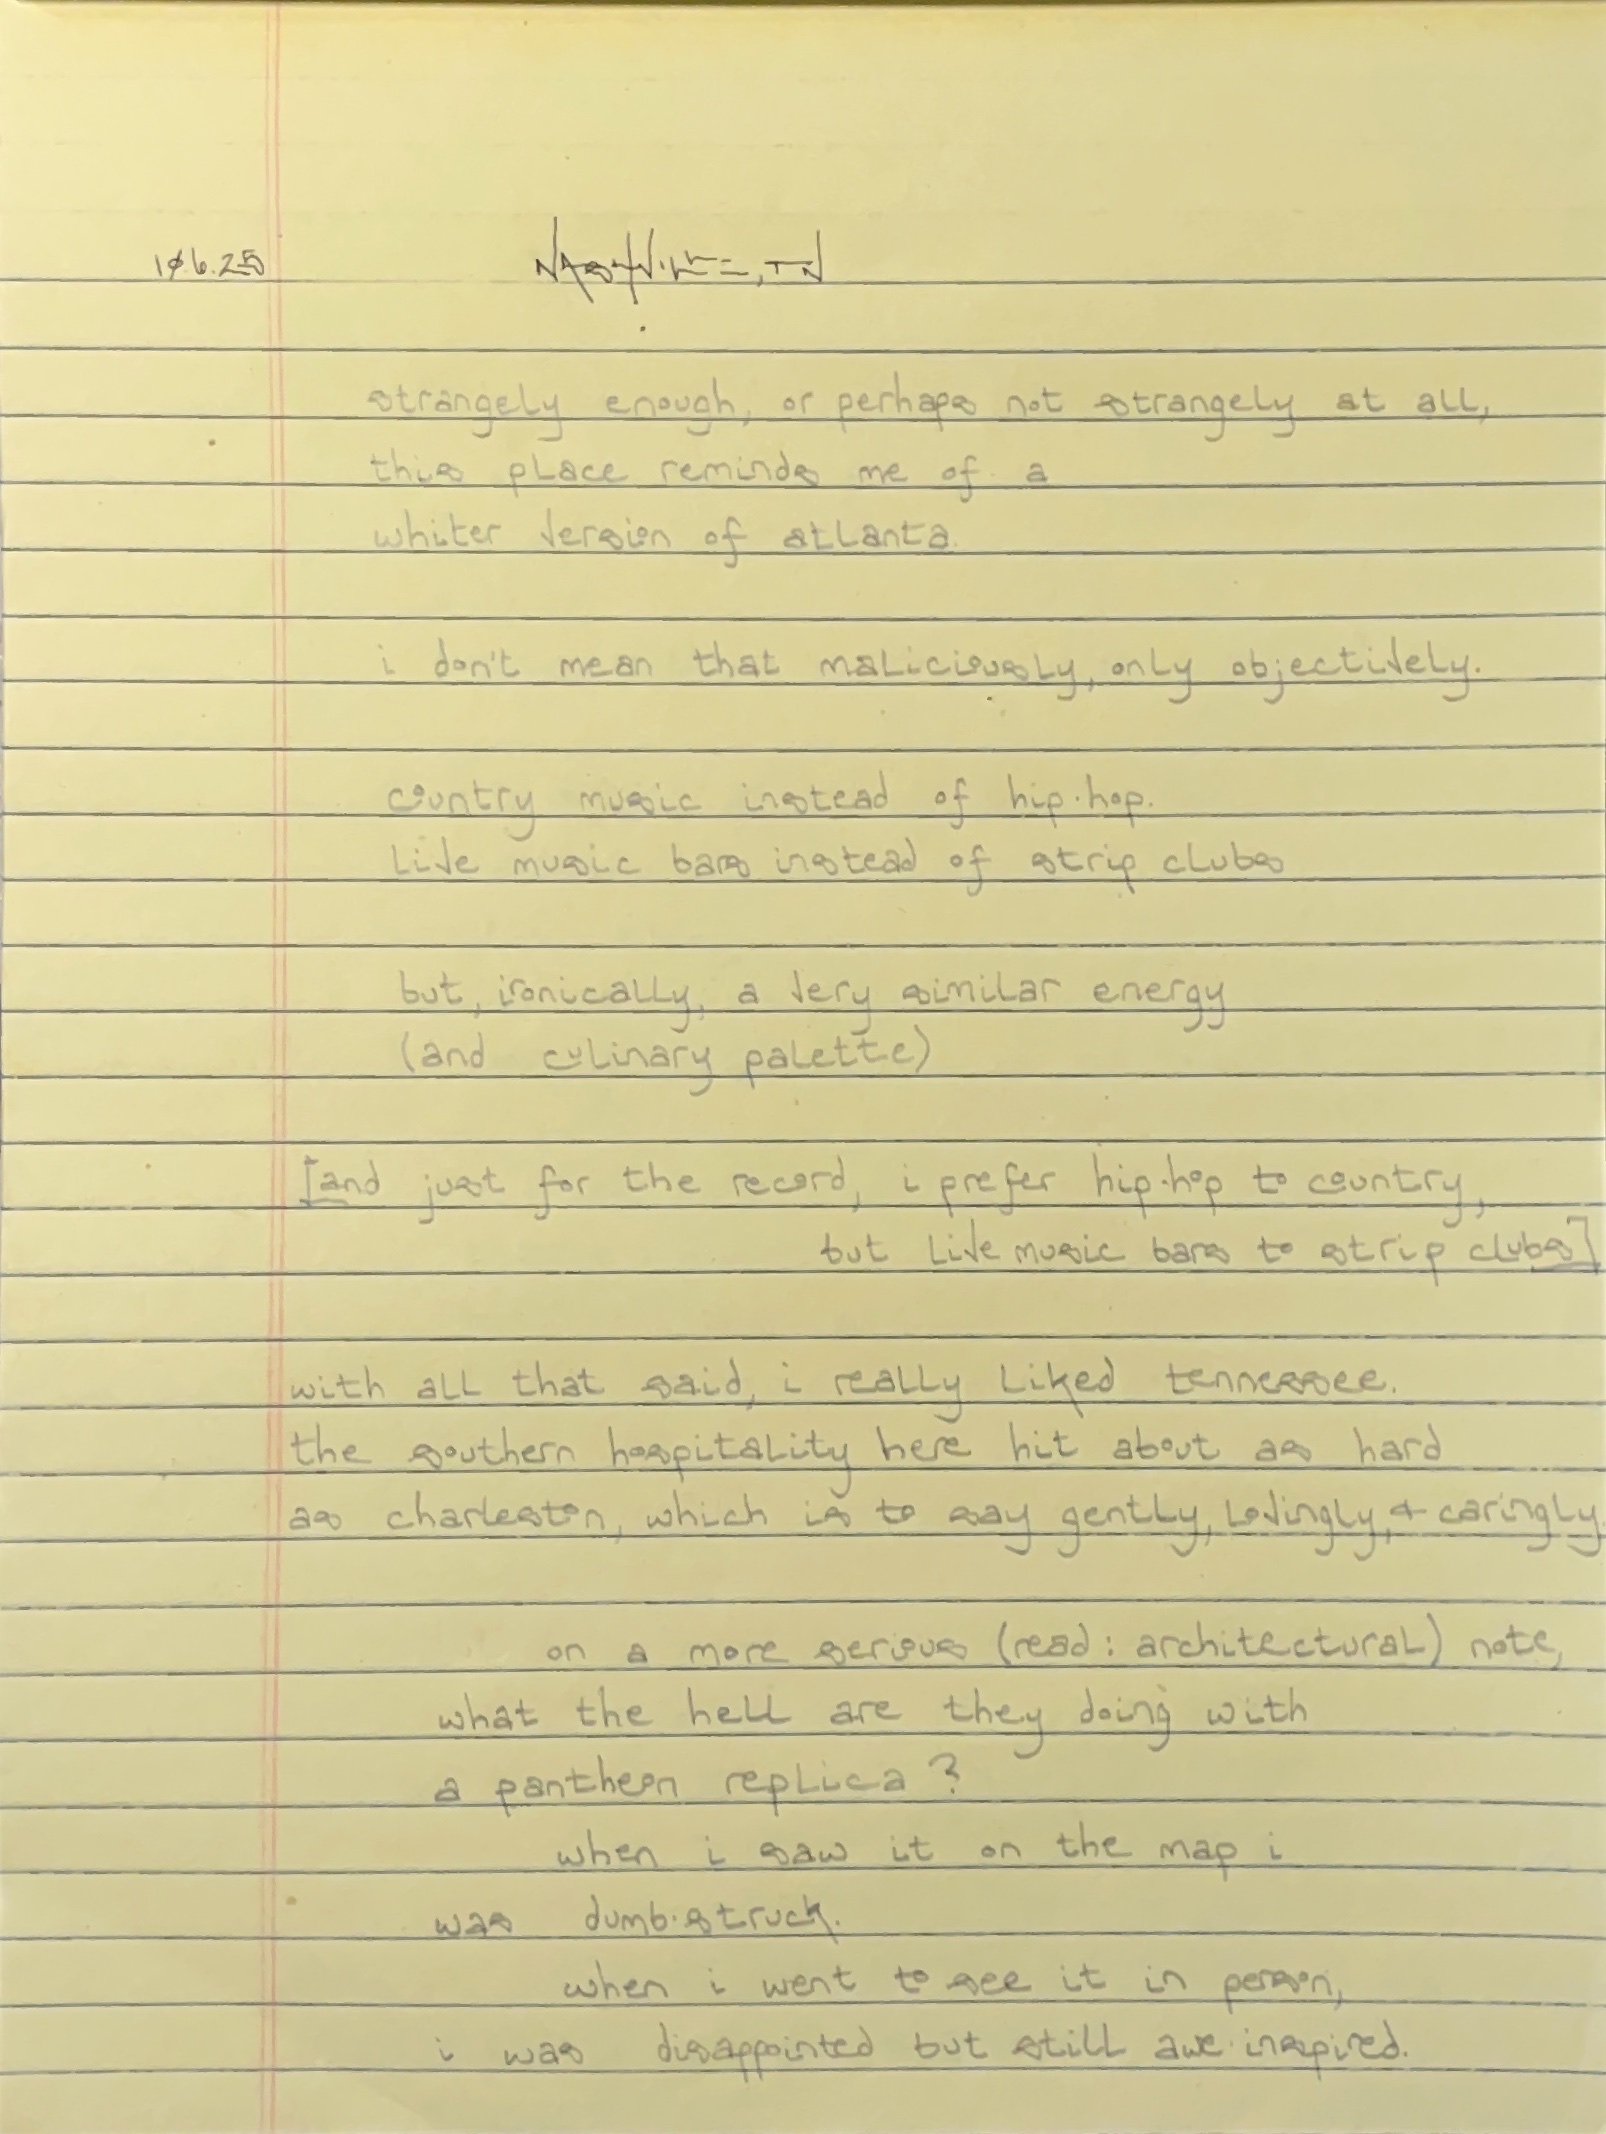 10.6.25 NASHVILLE, TN
strangely enough, or perhaps not strangely at all,
this place reminds me of a
whiter version of atlanta.
i don't mean that maliciously, only objectively.
country music instead of hip·hop.
live music bars instead of strip clubs
but, ironically, a very similar energy
(and culinary palette)
[and just for the record, i prefer hip·hop to country,
but live music bars to strip clubs]
with all that said, i really liked tennessee.
the southern hospitality here hit about as hard
as charleston, which is to say gently, lovingly, & caringly.
on a more serious (read: architectural) note,
what the hell are they doing with
a pantheon replica?
when i saw it on the map i
was dumb·struck.
when i went to see it in person,
i was disappointed but still awe·inspired.